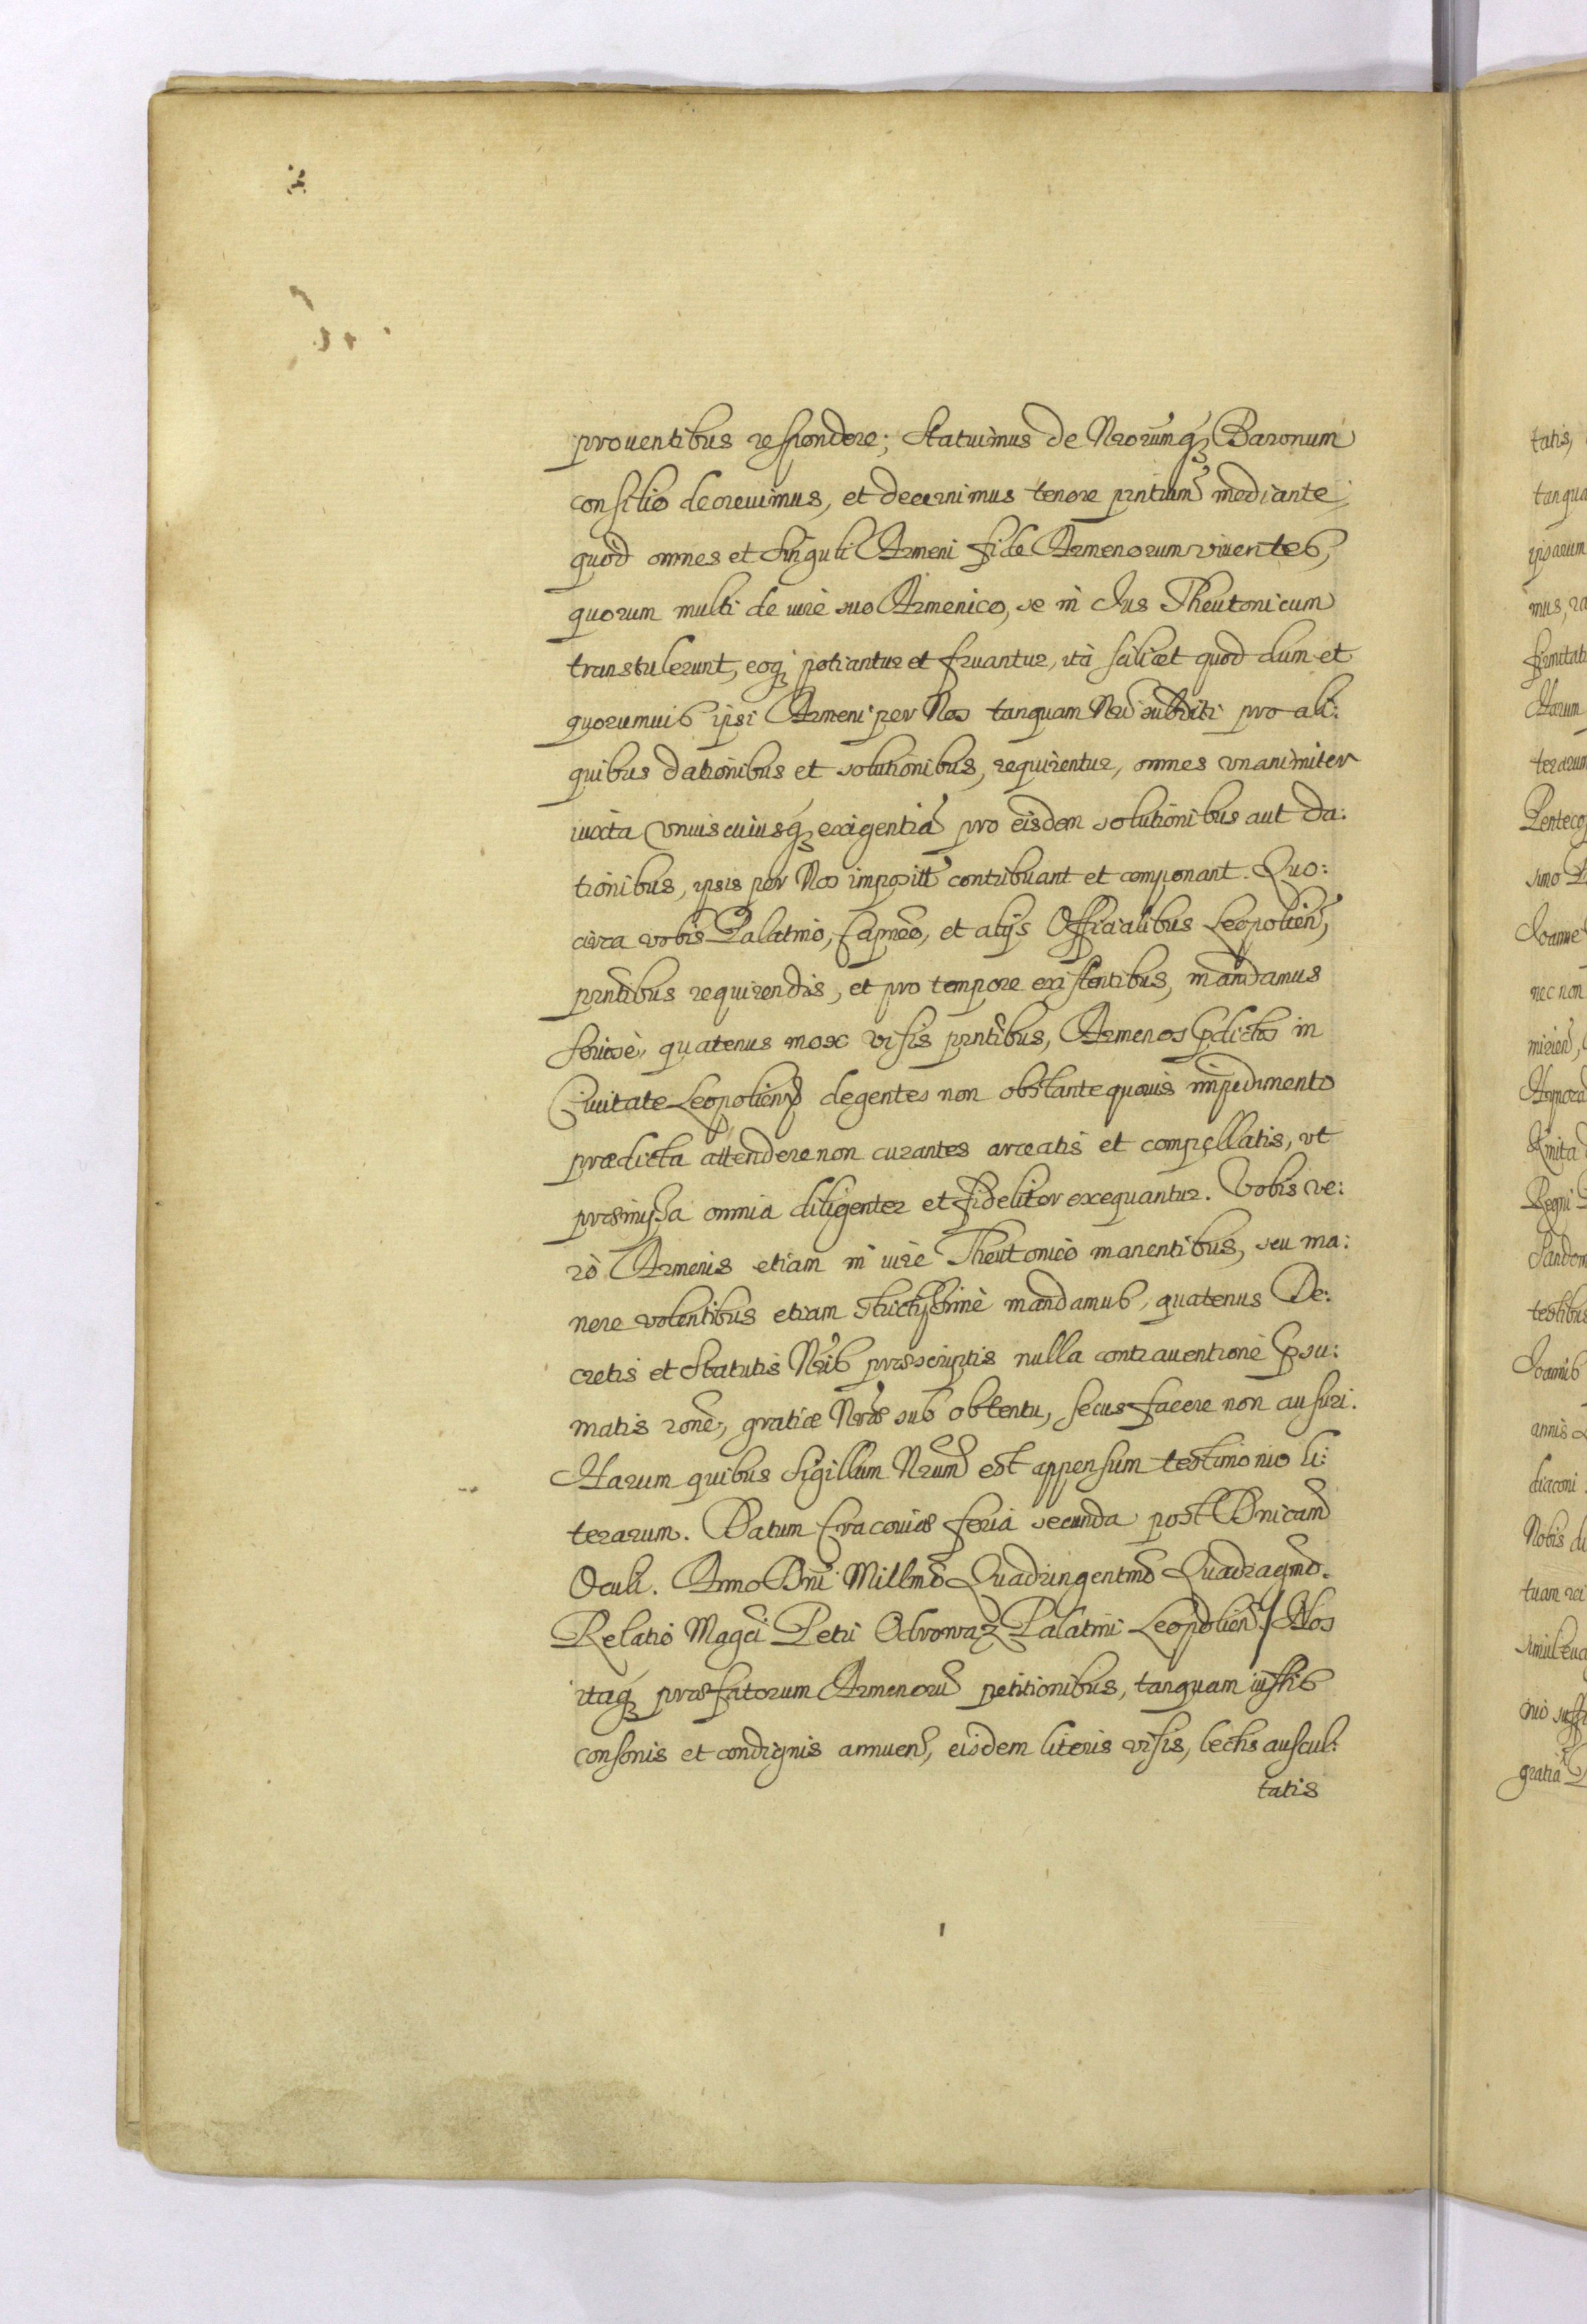 prouentibus respondere; Statuimus de Nrorumq; Baronum
consilio decreuimus, et decernimus tenore pntium mediante,
quod omnes et singuli Armeni fide Armenorum viuentes,
quorum multi de iure suo Armenico, se in Ius Theutonicum
transtulerunt, eoq; potiantur et fruantur, ità scilicet quod dum et
quorumuis ipsi Armeni per Nos tanquam Nri subditi pro ali:
quibus dationibus et solutionibus, requirentur, omnes vnanimiter
iuxta vnuiscuiusq; exigentiã pro eisdem solutionibus aut da:
tionibus, ipsis per Nos imposit contribuant et componant. Quo:
circa vobis Palatino, Capneo, et alijs Officialibus Leopolien,
pntibus requirendis, et pro tempore existentibus, mandamus
seriosè, quatenus mox visis pntibus, Armenos pdictos in
Ciuitate Leopolien degentes non obstante quouis impedimento
prædicta attendere non curantes arceatis et compellatis, vt
præmissa omnia diligenter et fideliter exequantur. Vobis ve:
rò Armenis etiam in iure Theutonico manentibus, seu ma:
nere volentibus etiam strictissimè mandamus, quatenus De:
cretis et Statutis Nris præscriptis nulla contrauentione psu:
matis rone, gratiæ Nræ sub obtentu, secus facere non ausuri.
Harum quibus Sigillum Nrum est appensum testimonio li:
terarum. Datum Cracouiæ feria secunda post Dnicam
Oculi. Anno Dni Millmo Quadringentmo Quadragmo.
Relatio Magci Petri Odrowaz Palatini Leopolien / Nos
itaq; præfatorum Armenorũ petitionibus, tanquam iustis
consonis et condignis annuen, eisdem literis visis, lectis auscul:
tatis